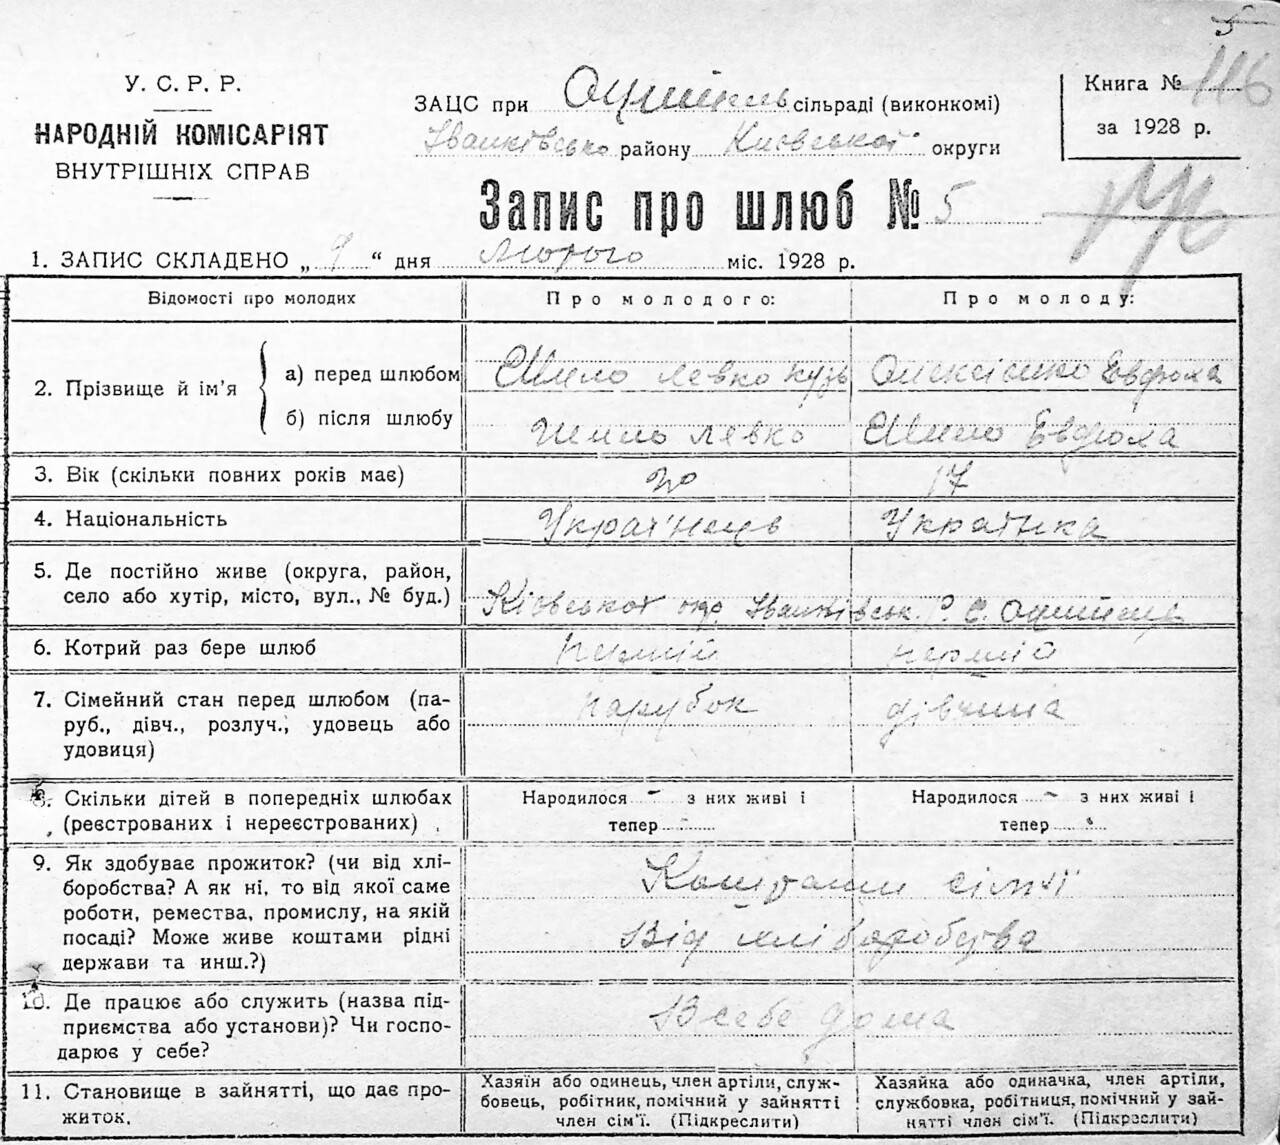 5
У. С. Р. Р.
НАРОДНІЙ КОМІСАРІЯТ
ВНУТРІШНІХ СПРАВ
ЗАЦС при сільраді (виконкомі)
Іванківсько району Київської округи
Книга № 116
за 1928 р.
Запис про шлюб № 5
1. ЗАПИС СКЛАДЕНО „ 9 “ дня лютого міс. 1928 р.
Відомості про молодих Про молодого: Про молоду:
2. Прізвище й ім’я
а) перед шлюбом Шило Левко Кузь Олексієнко Евфрола
б) після шлюбу Шило Левко Шило Евфрола
3. Вік (скільки повних років має) 20 17
4. Національність Украінець Українка
5. Де постійно живе (округа, район,
село або хутір, місто, вул., № буд.) Київської окр. Іванківськ. Р. С.
6. Котрий раз бере шлюб перший перший
7. Сімейний стан перед шлюбом (па-
руб., дівч., розлуч., удовець або
удовиця) парубок дівчина
8. Скільки дітей в попередніх шлюбах
(реєстрованих і нереєстрованих)
Народилося – з них живі і
тепер
Народилося – з них живі і
тепер
9. Як здобуває прожиток? (чи від хлі-
боробства? А як ні, то від якої саме
роботи, ремества, промислу, на якій
посаді? Може живе коштами рідні
держави та инш.?)
Коштами сімʼї
Від хліборобства
10. Де працює або служить (назва під-
приємства або установи)? Чи госпо-
дарює у себе?
В себе дома
11. Становище в зайнятті, що дає про-
житок.
Хазяїн або одинець, член артіли, служ-
бовець, робітник, помічний у зайнятті
член сім’ї. (Підкреслити)
Хазяйка або одиначка, член артіли,
службовка, робітниця, помічний у зай-
нятті член сім’ї. (Підкреслити)